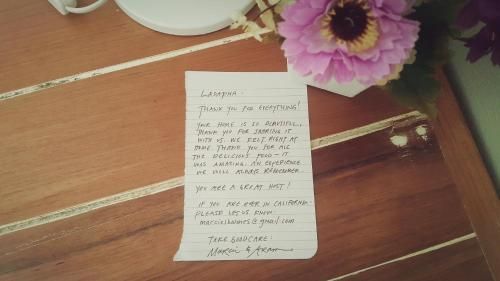 LADAPHA.
THANK YOU FOR EVERYTHING!
YOUR HOME IS SO BEAUTIFUL,
THANK YOU FOR SHARING IT
WITH US. WE FELT RIGHT AT
HOME. THANK YOU FOR ALL
THE DELICIOUS FOOD - IT
WAS AMAZING. AN EXPERIENCE
WE WILL ALWAYS REMEMBER.
YOU ARE A GREAT HOST!
IF YOU ARE EVER IN CALIFORNIA.
PLEASE LET US KNOW.
@gmail.com
TAKE GOOD CARE.
MARCIE & ADAM